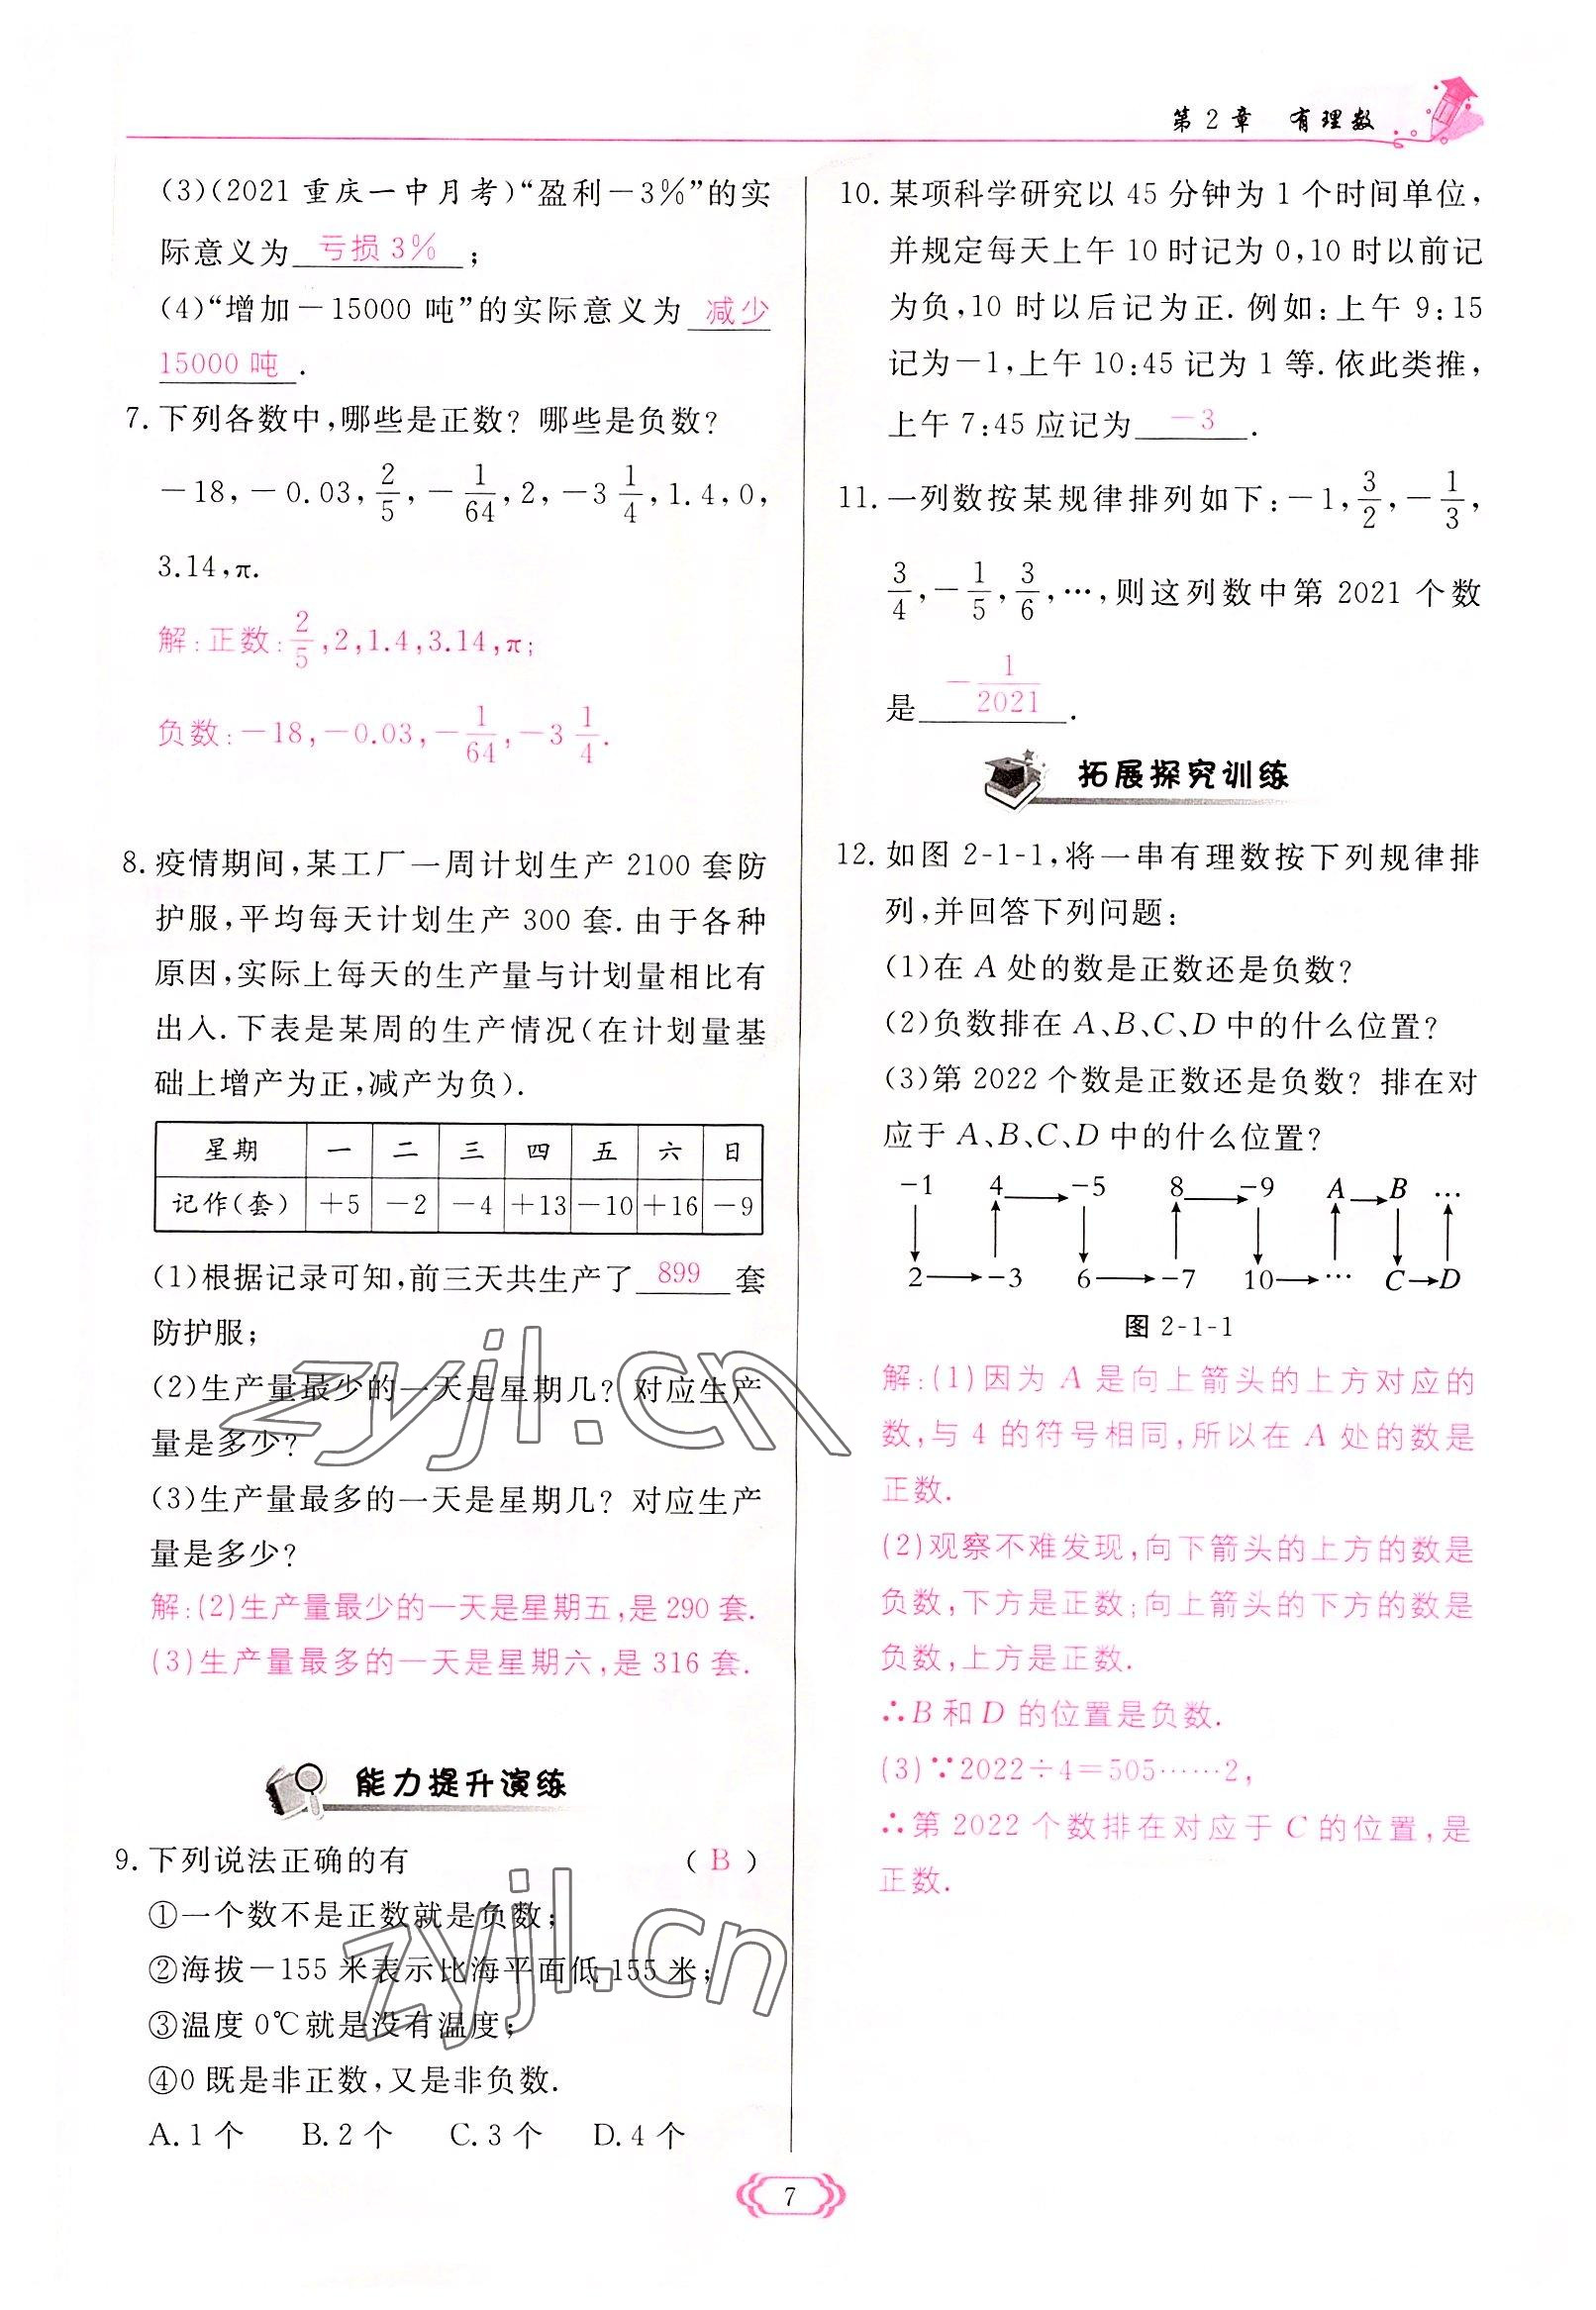 第2章 有理数
(3)(2021 重庆一中月考)“盈利－3%”的实
际意义为 亏损3% ;
(4)“增加－15000 吨”的实际意义为 减少
15000吨 .
7. 下列各数中,哪些是正数? 哪些是负数?
－18,－0.03,2/5,－1/64,2,－3 1/4,1.4,0,
3.14,π.
解:正数:2/5,2,1.4,3.14,π;
负数:－18,－0.03,－1/64,－3 1/4.
8. 疫情期间,某工厂一周计划生产 2100 套防
护服,平均每天计划生产 300 套.由于各种
原因,实际上每天的生产量与计划量相比有
出入.下表是某周的生产情况(在计划量基
础上增产为正,减产为负).
星期 一 二 三 四 五 六 日
记作(套) ＋5 －2 －4 ＋13 －10 ＋16 －9
(1)根据记录可知,前三天共生产了 899 套
防护服;
(2)生产量最少的一天是星期几? 对应生产
量是多少?
(3)生产量最多的一天是星期几? 对应生产
量是多少?
解:(2)生产量最少的一天是星期五,是290套.
(3)生产量最多的一天是星期六,是316套.
能力提升演练
9. 下列说法正确的有 ( B )
①一个数不是正数就是负数;
②海拔－155 米表示比海平面低 155 米;
③温度 0℃就是没有温度;
④0 既是非正数,又是非负数.
A. 1 个 B. 2 个 C. 3 个 D. 4 个
10. 某项科学研究以 45 分钟为 1 个时间单位,
并规定每天上午 10 时记为 0,10 时以前记
为负,10 时以后记为正. 例如:上午 9:15
记为－1,上午 10:45 记为 1 等. 依此类推,
上午 7:45 应记为 －3 .
11. 一列数按某规律排列如下:－1,3/2,－1/3,
3/4,－1/5,3/6,…,则这列数中第 2021 个数
是 －1/2021 .
拓展探究训练
12. 如图 2-1-1,将一串有理数按下列规律排
列,并回答下列问题:
(1)在 A 处的数是正数还是负数?
(2)负数排在 A、B、C、D 中的什么位置?
(3)第 2022 个数是正数还是负数? 排在对
应于 A、B、C、D 中的什么位置?
－1 4 → －5 8 → －9 A → B …
↓ ↑ ↓ ↑ ↓ ↑ ↓ ↑
2 → －3 6 → －7 10 → … C → D
图 2-1-1
解:(1)因为 A 是向上箭头的上方对应的
数,与 4 的符号相同,所以在 A 处的数是
正数.
(2)观察不难发现,向下箭头的上方的数是
负数,下方是正数;向上箭头的下方的数是
负数,上方是正数.
∴B 和 D 的位置是负数.
(3)∵2022÷4=505……2,
∴第 2022 个数排在对应于 C 的位置,是
正数.
zyjl.cn
zyjl.cn
7